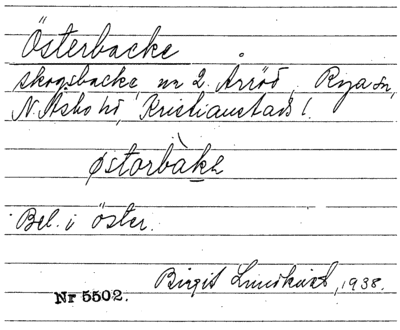 Österbacke
skogsbacke nr 2 Årröd, Rya sn,
N. Åsbo hd, Kristianstads l.
østorbàkə
Bel. i öster.
Birgit Lundkvist, 1938.
Nr 5502.